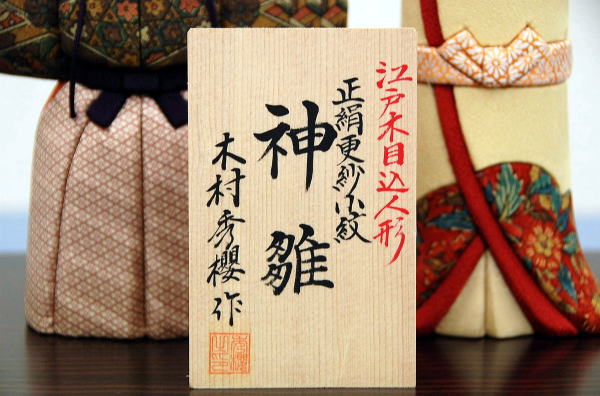 江戸木目込人形
正絹更紗小紋
神雛
木村秀櫻作